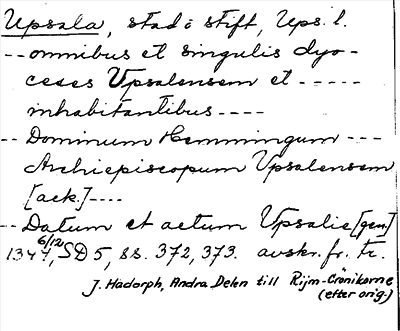 Upsala, stad i stift, Ups. l.
-- omnibus et singulis dyo-
ceses Upsalensem et -----
inhabitantibus ----
-- Dominum Hemmingum ---
Archiepiscopum Upsalensem
[ack.]----
-- Datum et actum Upsalie [gen.]
1344 6/12, SD 5, ss. 372, 373. avskr. fr. tr.
J. Hadorph, Andra Delen till Rijm-Crönikorne
(efter orig.)